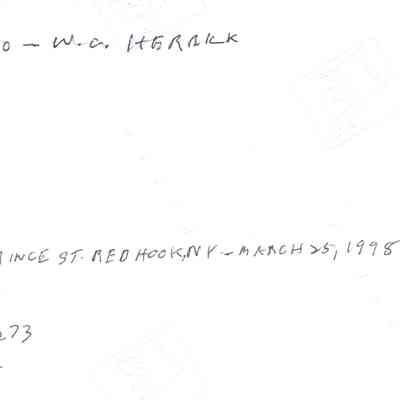 O - W.C. HERRICK
RINCE ST. RED HOOK, NY - MARCH 25, 1998
273